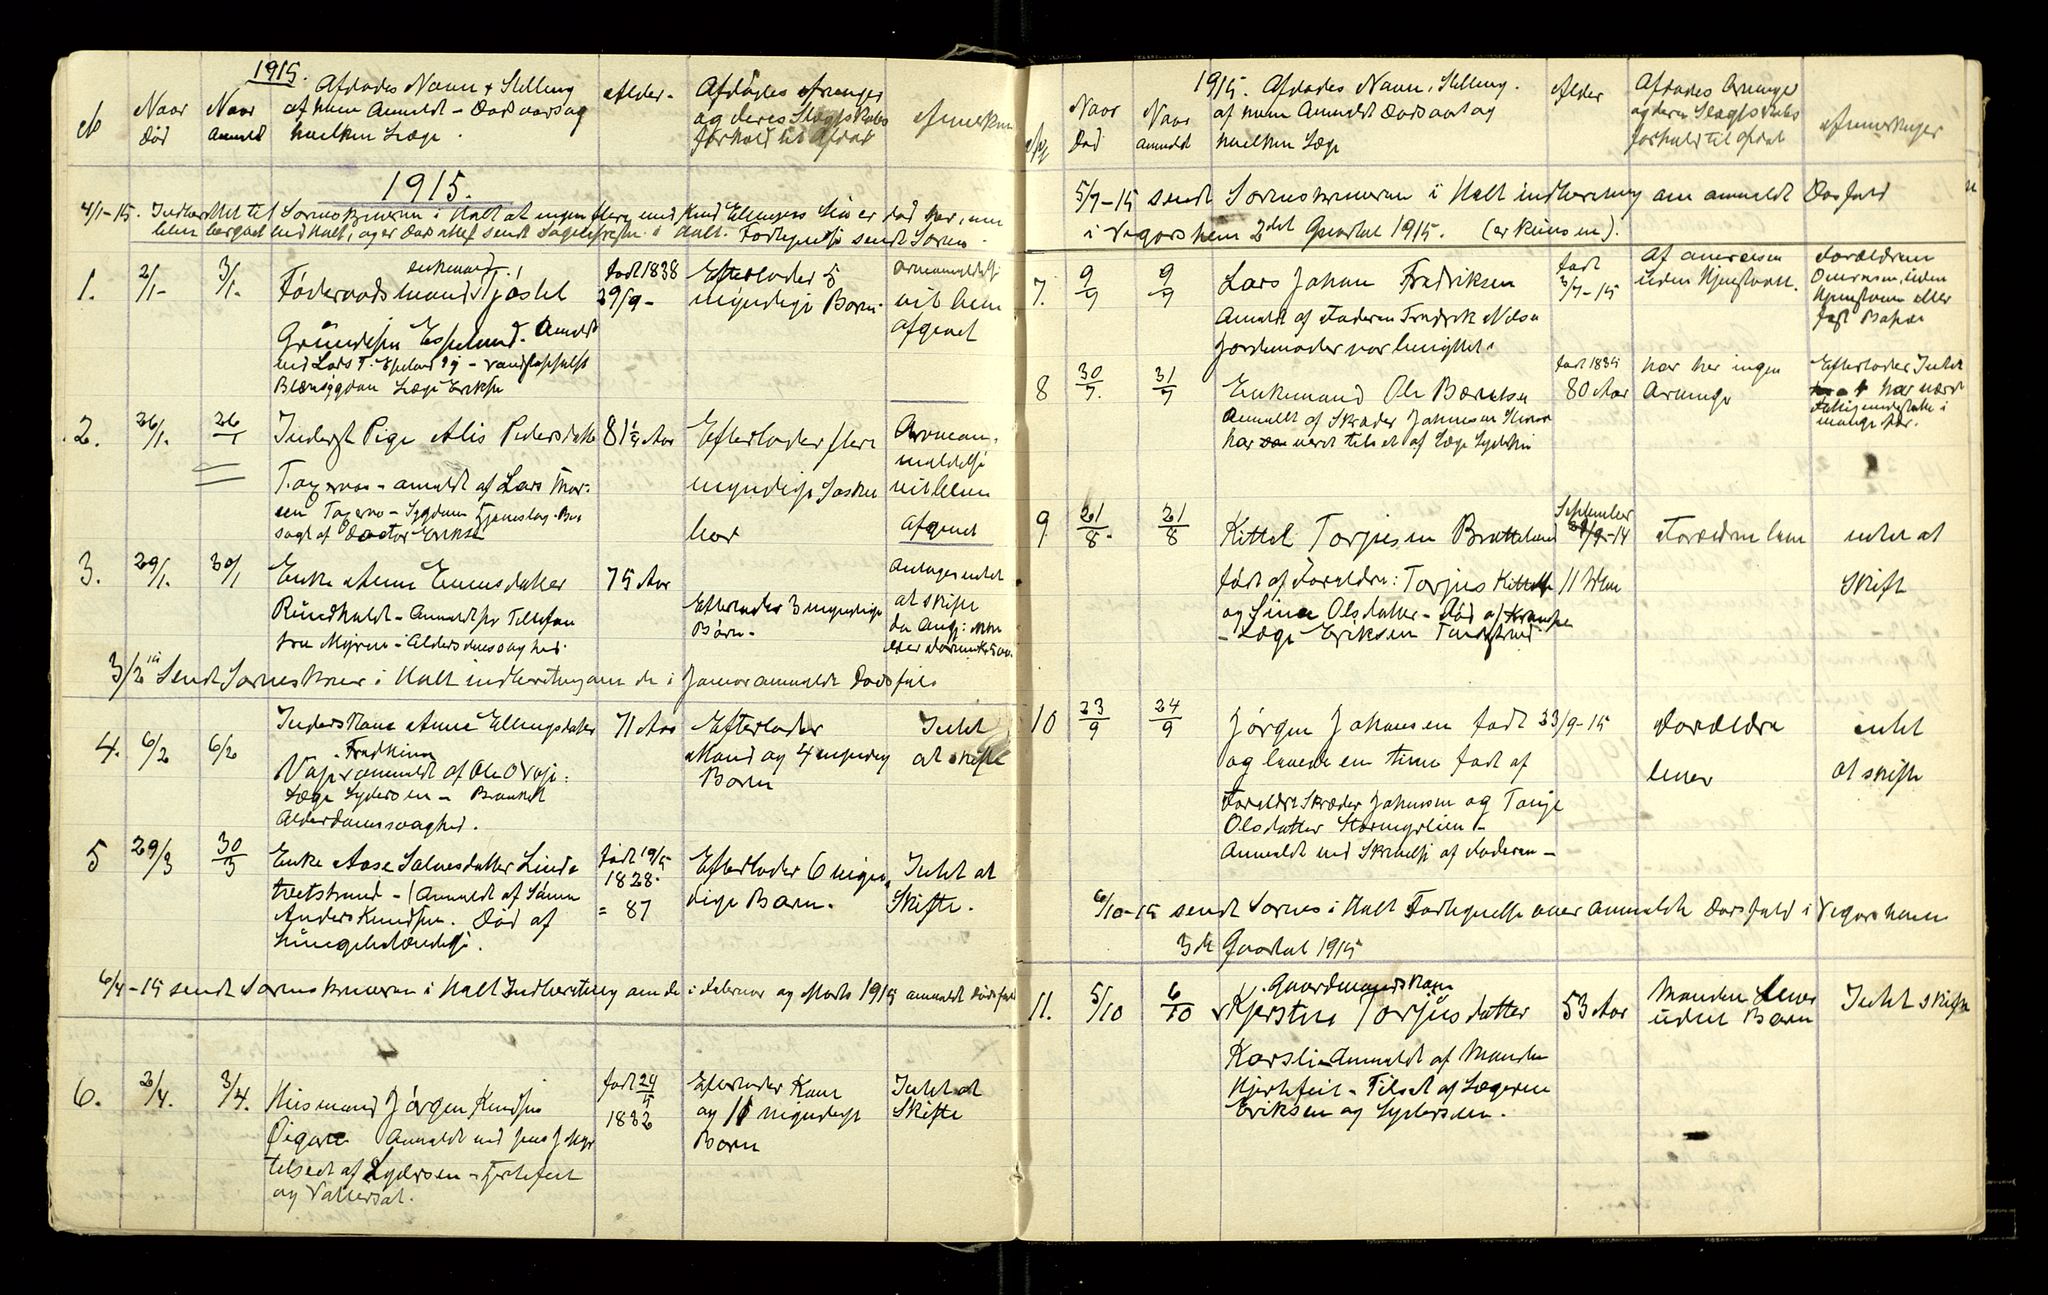 1915.
No
Naar
Død
Naar
Anmeldt
Afdødes Navn & Stilling
af hvem Anmeldt - Dødsaarsag
hvilken Læge.
Alder-
Afdødes Arvinger
og deres Slægtskabs
forhold til Afdøde
1915.
4/1-15. Indberettet til Sorenskriveren i Holt at ingen flere end Knud Ellingsens er død her, men
blev i Holt, og er sendt i Holt. sendt Soren
1. 2/1- 3/1.
enkemand
Føderaadsmand Tjøstel
Espelund. Anmeldt
ved Lars T. Espelund
Læge Eriksen
født 1838
29/9-
Efterlader 5
myndige Børn.
vil blive
afgivet
2. 26/1. 26/1
Inderst Pige Alis Pedersdatter
anmeldt af Lars
Sygdom
af Doctor Eriksen
81½ Aar
Efterlader flere
myndige Søsken
vil blive
afgivet
3. 29/1. 30/1
Enke Anne
Anmeldt pr Tellefon
fra Myren - Alderdomssvaghed.
75 Aar
Efterlader 3 myndige
Børn-
Antages intet
at skifte
3/2 15 Sendt Sorenskriver i Holt indberetning om de i Januar anmeldte Dødsfald.
4. 6/2 6/2
Inderstkone Anne Ellingsdatter
anmeldt af Ole
Læge Lydersen -
Alderdomssvaghed.
71 Aar
Efterlader
Mand og 4 myndig
Børn
Intet
at skifte
5 29/3 30/3
Enke Aase Salvesdatter Linde
tveitstrand - (Anmeldt af Sønnen
Anders Knudsen. Død af
Lungebetændelse.
født 19/5
1828.
= 87
Efterlader 6 myn
dige Børn.
Intet at
Skifte.
6/4-15 sendt Sorenskriveren i Holt Indberetning om de i Februar og Marts 1915 anmeldt Dødsfald
6. 2/4. 3/4.
Husmand Jørgen Knudsen
Anmeldt ved
tilseet af Lydersen - Hjertefeil
og Vattersot.
født 24/5
1832
Efterlader Kone
og 11 myndige
Børn
Intet at
Skifte
1915. Afdødes Navn, Stilling.
af hvem Anmeldt Dødsaarsag
hvilken Læge
Naar
Død
Naar
anmeldt
Alder
Afdødes Arvinger
og deres Slægtskabs
forhold til Afdød
Anmerkninger
5/7-15 sendt Sorenskriveren i Holt indberetning om anmeldt Dødsfald
i Vegaarsheien 2det Qvartal 1915. (er kun en).
7. 9/7 9/7
Lars Johan Fredriksen
Anmeldt af Faderen Fredrik Nilsen
Jordemoder var benyttet.
født
3/7-15
uden Hjemstavn.
Forældrene
Omreisen, uden
Hjemstavn eller
fast Bopæl
8 30/7. 31/7
Enkemand Ole Berntsen
Anmeldt af Skræder Johnsen
har været tilset af Læge Lydersen
født 1835
80 Aar
har her ingen
Arvinge
Efterlader Intet
har været
i
mange Aar.
9. 21/8. 21/8
Kittel Torjusen Bratteland
født af Forældre: Torjus Kittels
og Sine Olsdatter - Død af
- Læge Eriksen
September
/9-14
11 Mdr
Forældre leve
intet at
Skifte
10 23/9 24/9
Jørgen Johnsen født 23/9-15
og levede en time født af
Forældre Skræder Johnsen og Tonje
Olsdatter Stormyrlien -
Anmeldt ved Skrivelse af Faderen -
Forældre
lever
intet
at skifte
6/10-15 sendt Sorens i Holt Fortegnelse over Anmeldte Dødsfald i Vegarsheien
3de Qvartal 1915
11. 5/10 6/10
Gaardmandskone
Kjerstine Torjusdatter
Anmeldt af Manden
Hjertefeil - Tilset af Lægerne
Eriksen og Lydersen.
53 Aar
Manden Lever
uden Børn
Intet skifte